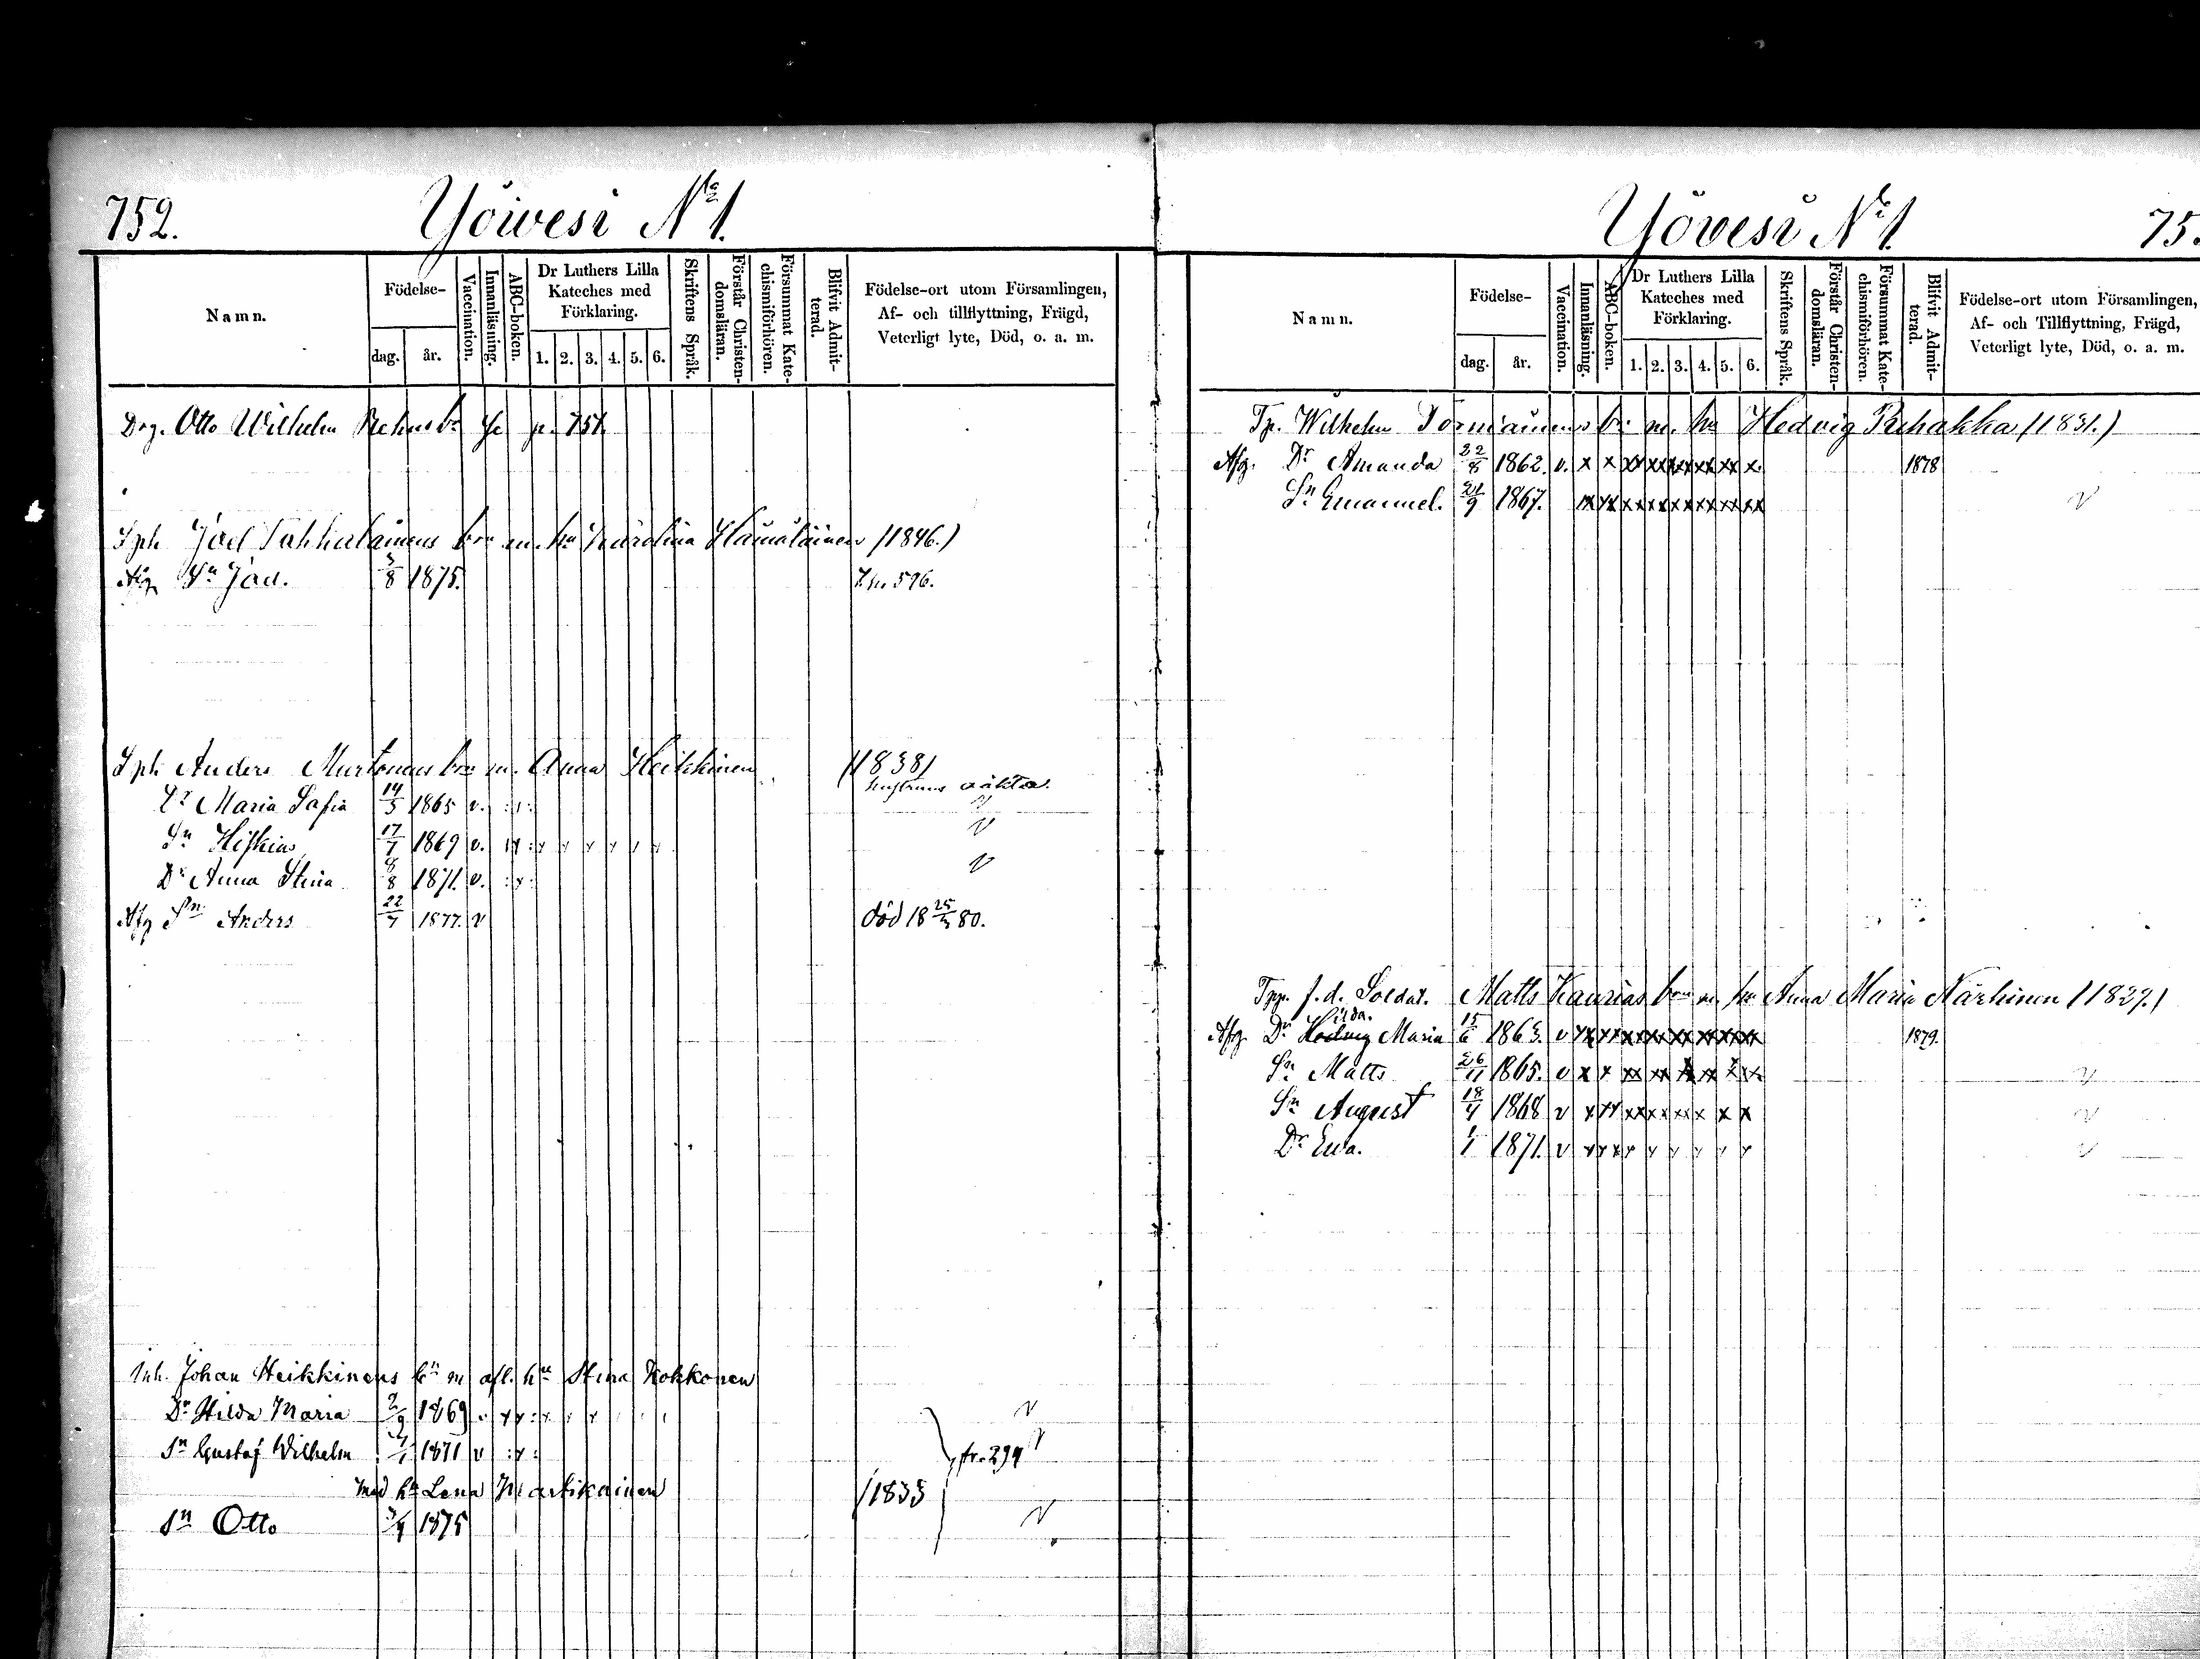 752.
Yöivesi No 1.
Namn.
Födelse-
dag.
år.
Vaccination.
Innanläsning.
ABC-boken.
Dr Luthers Lilla Kateches med Förklaring.
1. 2. 3. 4. 5. 6.
Skriftens Språk.
Förstår Christen-domsläran.
Försummat Kate-chismiförhören.
Blifvit Admit-terad.
Födelse-ort utom Församlingen, Af- och tillflyttning, Frägd, Veterligt lyte, Död, o. a. m.
Drg. Otto Wilhelm p. 751.
Sph Joel bn m. hu Karolina Hämäläinen (1846.)
Afg Sn Joel. 3/8 1875. 596.
Sph Anders Murtonens bn m. Anna Heikkinen (1838)
Dr Maria Sofia 14/3 1865 v.
Sn Hiskias 17/7 1869 v.
Dr Anna Stina 8/8 1871. v.
Afg Sn Anders 22/7 1877. v död 18 25/3 80.
Inh. Johan Heikkinens bn m afl. hu Stina Kokkonen
Dr Hilda Maria 2/9 1869
Sn Gustaf Wilhelm 1871 v fr. 294
med hu Lena Martikainen (1833
Sn Otto 3/4 1875
Yövesi No 1.
75
Namn.
Födelse-
dag.
år.
Vaccination.
Innanläsning.
ABC-boken.
Dr Luthers Lilla Kateches med Förklaring.
1. 2. 3. 4. 5. 6.
Skriftens Språk.
Förstår Christen-domsläran.
Försummat Kate-chismiförhören.
Blifvit Admit-terad.
Födelse-ort utom Församlingen, Af- och Tillflyttning, Frägd, Veterligt lyte, Död, o. a. m.
Tp. Wilhelm Torniainens bn m. hu Hedvig Rehakka (1831.)
Afg. Dr Amanda 22/8 1862. v. x x xx xx xx xx xx x. 1878
Sn Emanuel. 21/9 1867.
Tpp. f.d. Soldat. Matts Kaurias bn m hu Anna Maria Närhinen (1829.)
Afg Dr Hedvig Hilda. Maria 15/6 1863. v 1879.
Sn Matts 26/11 1865. v
Sn August 18/4 1868 v
Dr Ewa. 1/1 1871. v